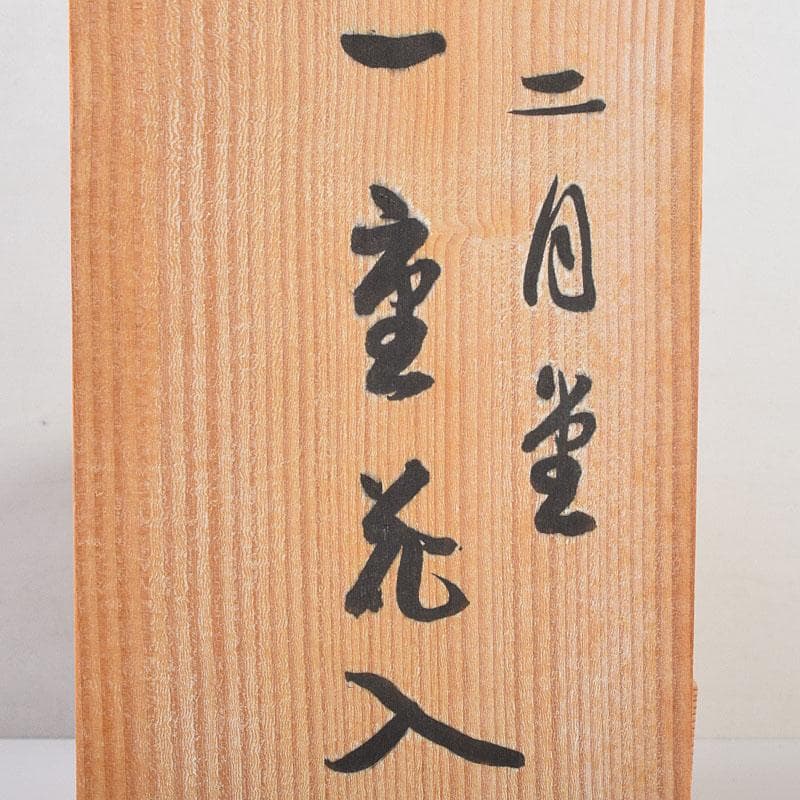 二月堂
一重花入